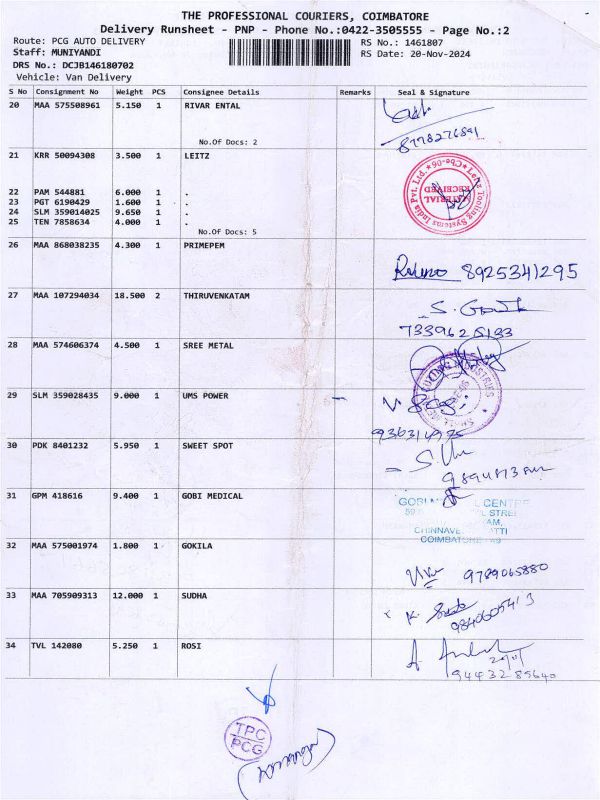 THE PROFESSIONAL COURIERS, COIMBATORE
Delivery Runsheet - PNP - Phone No.:0422-3505555 - Page No.:2
Route: PCG AUTO DELIVERY
RS No.: 1461807
Staff: MUNIYANDI
RS Date: 20-Nov-2024
DRS No.: DCJB146180702
Vehicle: Van Delivery
S No Consignment No Weight PCS Consignee Details Remarks Seal & Signature
20 MAA 575508961 5.150 1 RIVAR ENTAL
8778276891
No.Of Docs: 2
21 KRR 50094308 3.500 1 LEITZ
Leitz Tooling Systems India Pvt. Ltd. * Cbe-06 *
MATERIAL
RECEIVED
22 PAM 544881 6.000 1 .
23 PGT 6190429 1.600 1 .
24 SLM 359014025 9.650 1 .
25 TEN 7858634 4.000 1 .
No.Of Docs: 5
26 MAA 868038235 4.300 1 PRIMEPEM
8925341295
27 MAA 107294034 18.500 2 THIRUVENKATAM
28 MAA 574606374 4.500 1 SREE METAL
29 SLM 359028435 9.000 1 UMS POWER
30 PDK 8401232 5.950 1 SWEET SPOT
31 GPM 418616 9.400 1 GOBI MEDICAL
GOBI CENTRE
COIMBATORE
32 MAA 575001974 1.800 1 GOKILA
9789065880
33 MAA 705909313 12.000 1 SUDHA
9840605413
34 TVL 142080 5.250 1 ROSI
20/11
9443289640
TPC
PCG